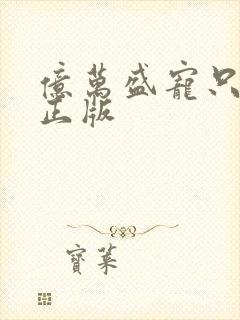 億萬盛寵只
正版
寶萊